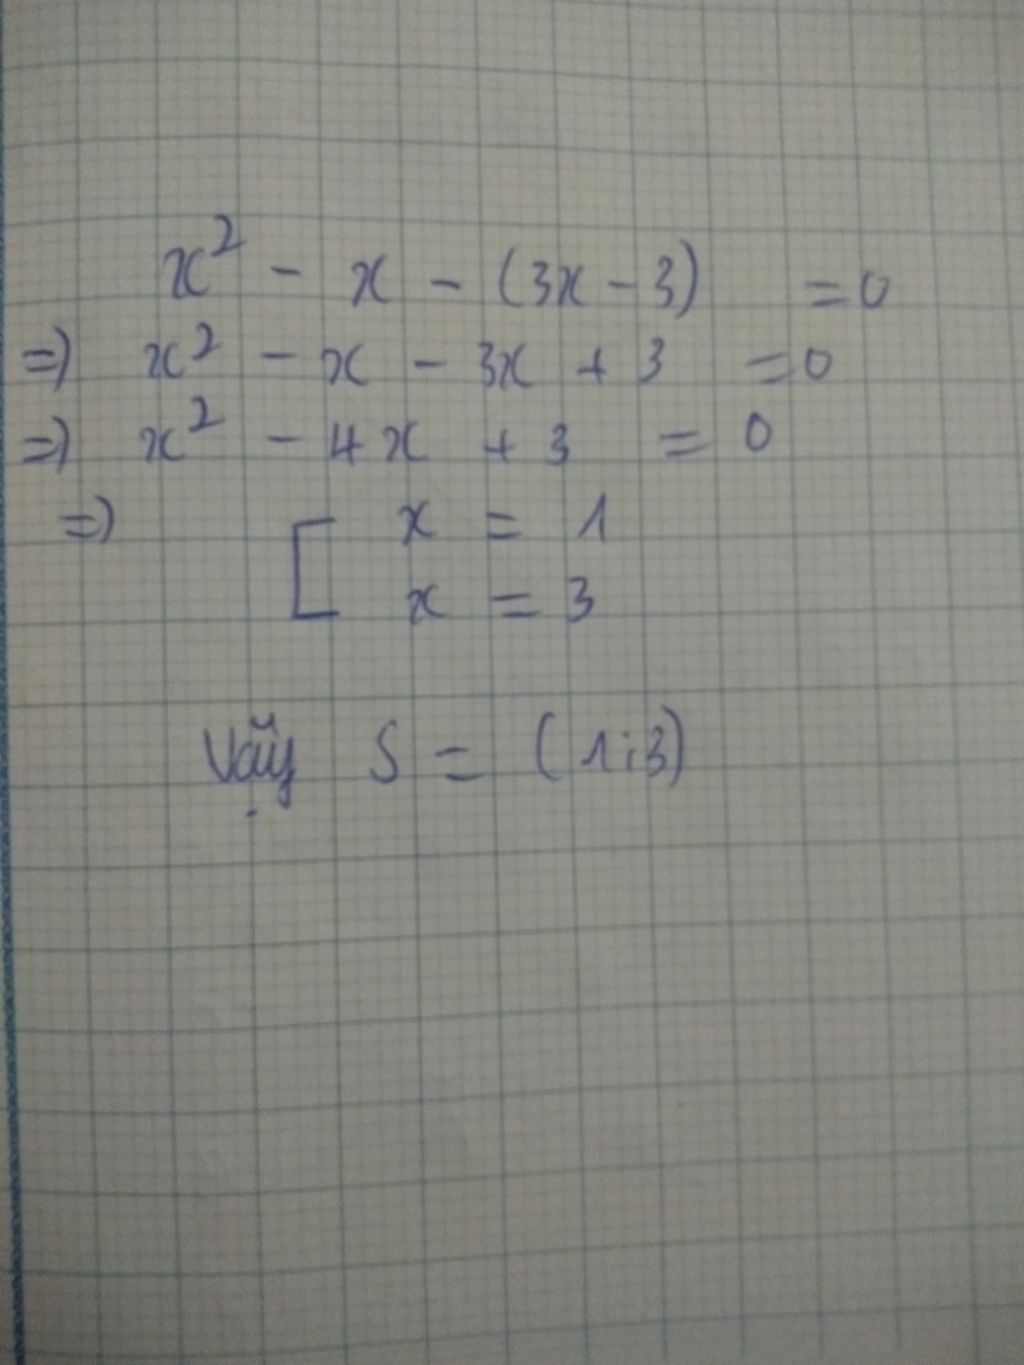 x² - x - (3x - 3) = 0
=) x² - x - 3x + 3 = 0
=) x² - 4x + 3 = 0
=) [ x = 1
x = 3
Vậy S = (1;3)